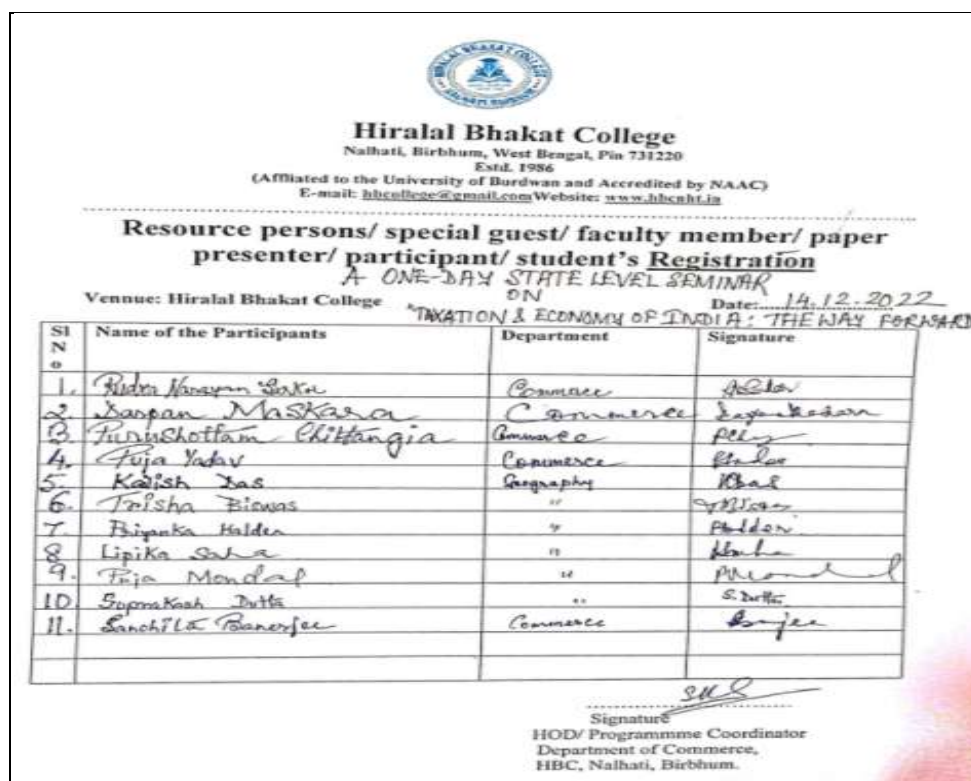 HIRALAL BHAKAT COLLEGE
NALHATI BIRBHUM
Hiralal Bhakat College
Nalhati, Birbhum, West Bengal, Pin 731220
Estd. 1986
(Affliated to the University of Burdwan and Accredited by NAAC)
E-mail: hbcollege@gmail.comWebsite: www.hbcnht.in
Resource persons/ special guest/ faculty member/ paper
presenter/ participant/ student's Registration
A ONE-DAY STATE LEVEL SEMINAR
ON
Vennue: Hiralal Bhakat College Date: 14.12.2022
"TAXATION & ECONOMY OF INDIA: THE WAY FORWARD
Sl No Name of the Participants Department Signature
1. Rudra Narayan Commerce
2. Darpan Maskara Commerce
3. Purushottam Chittangia Commerce
4. Puja Yadav Commerce
5. Das Geography
6. Trisha Biswas "
7. Priyanka Halder "
8 Lipika Saha "
9. Puja Mondal " PMondal
10 Dutta " S. Dutta
11. Sanchita Banerjee Commerce
Signature
HOD/ Programmme Coordinator
Department of Commerce,
HBC, Nalhati, Birbhum.